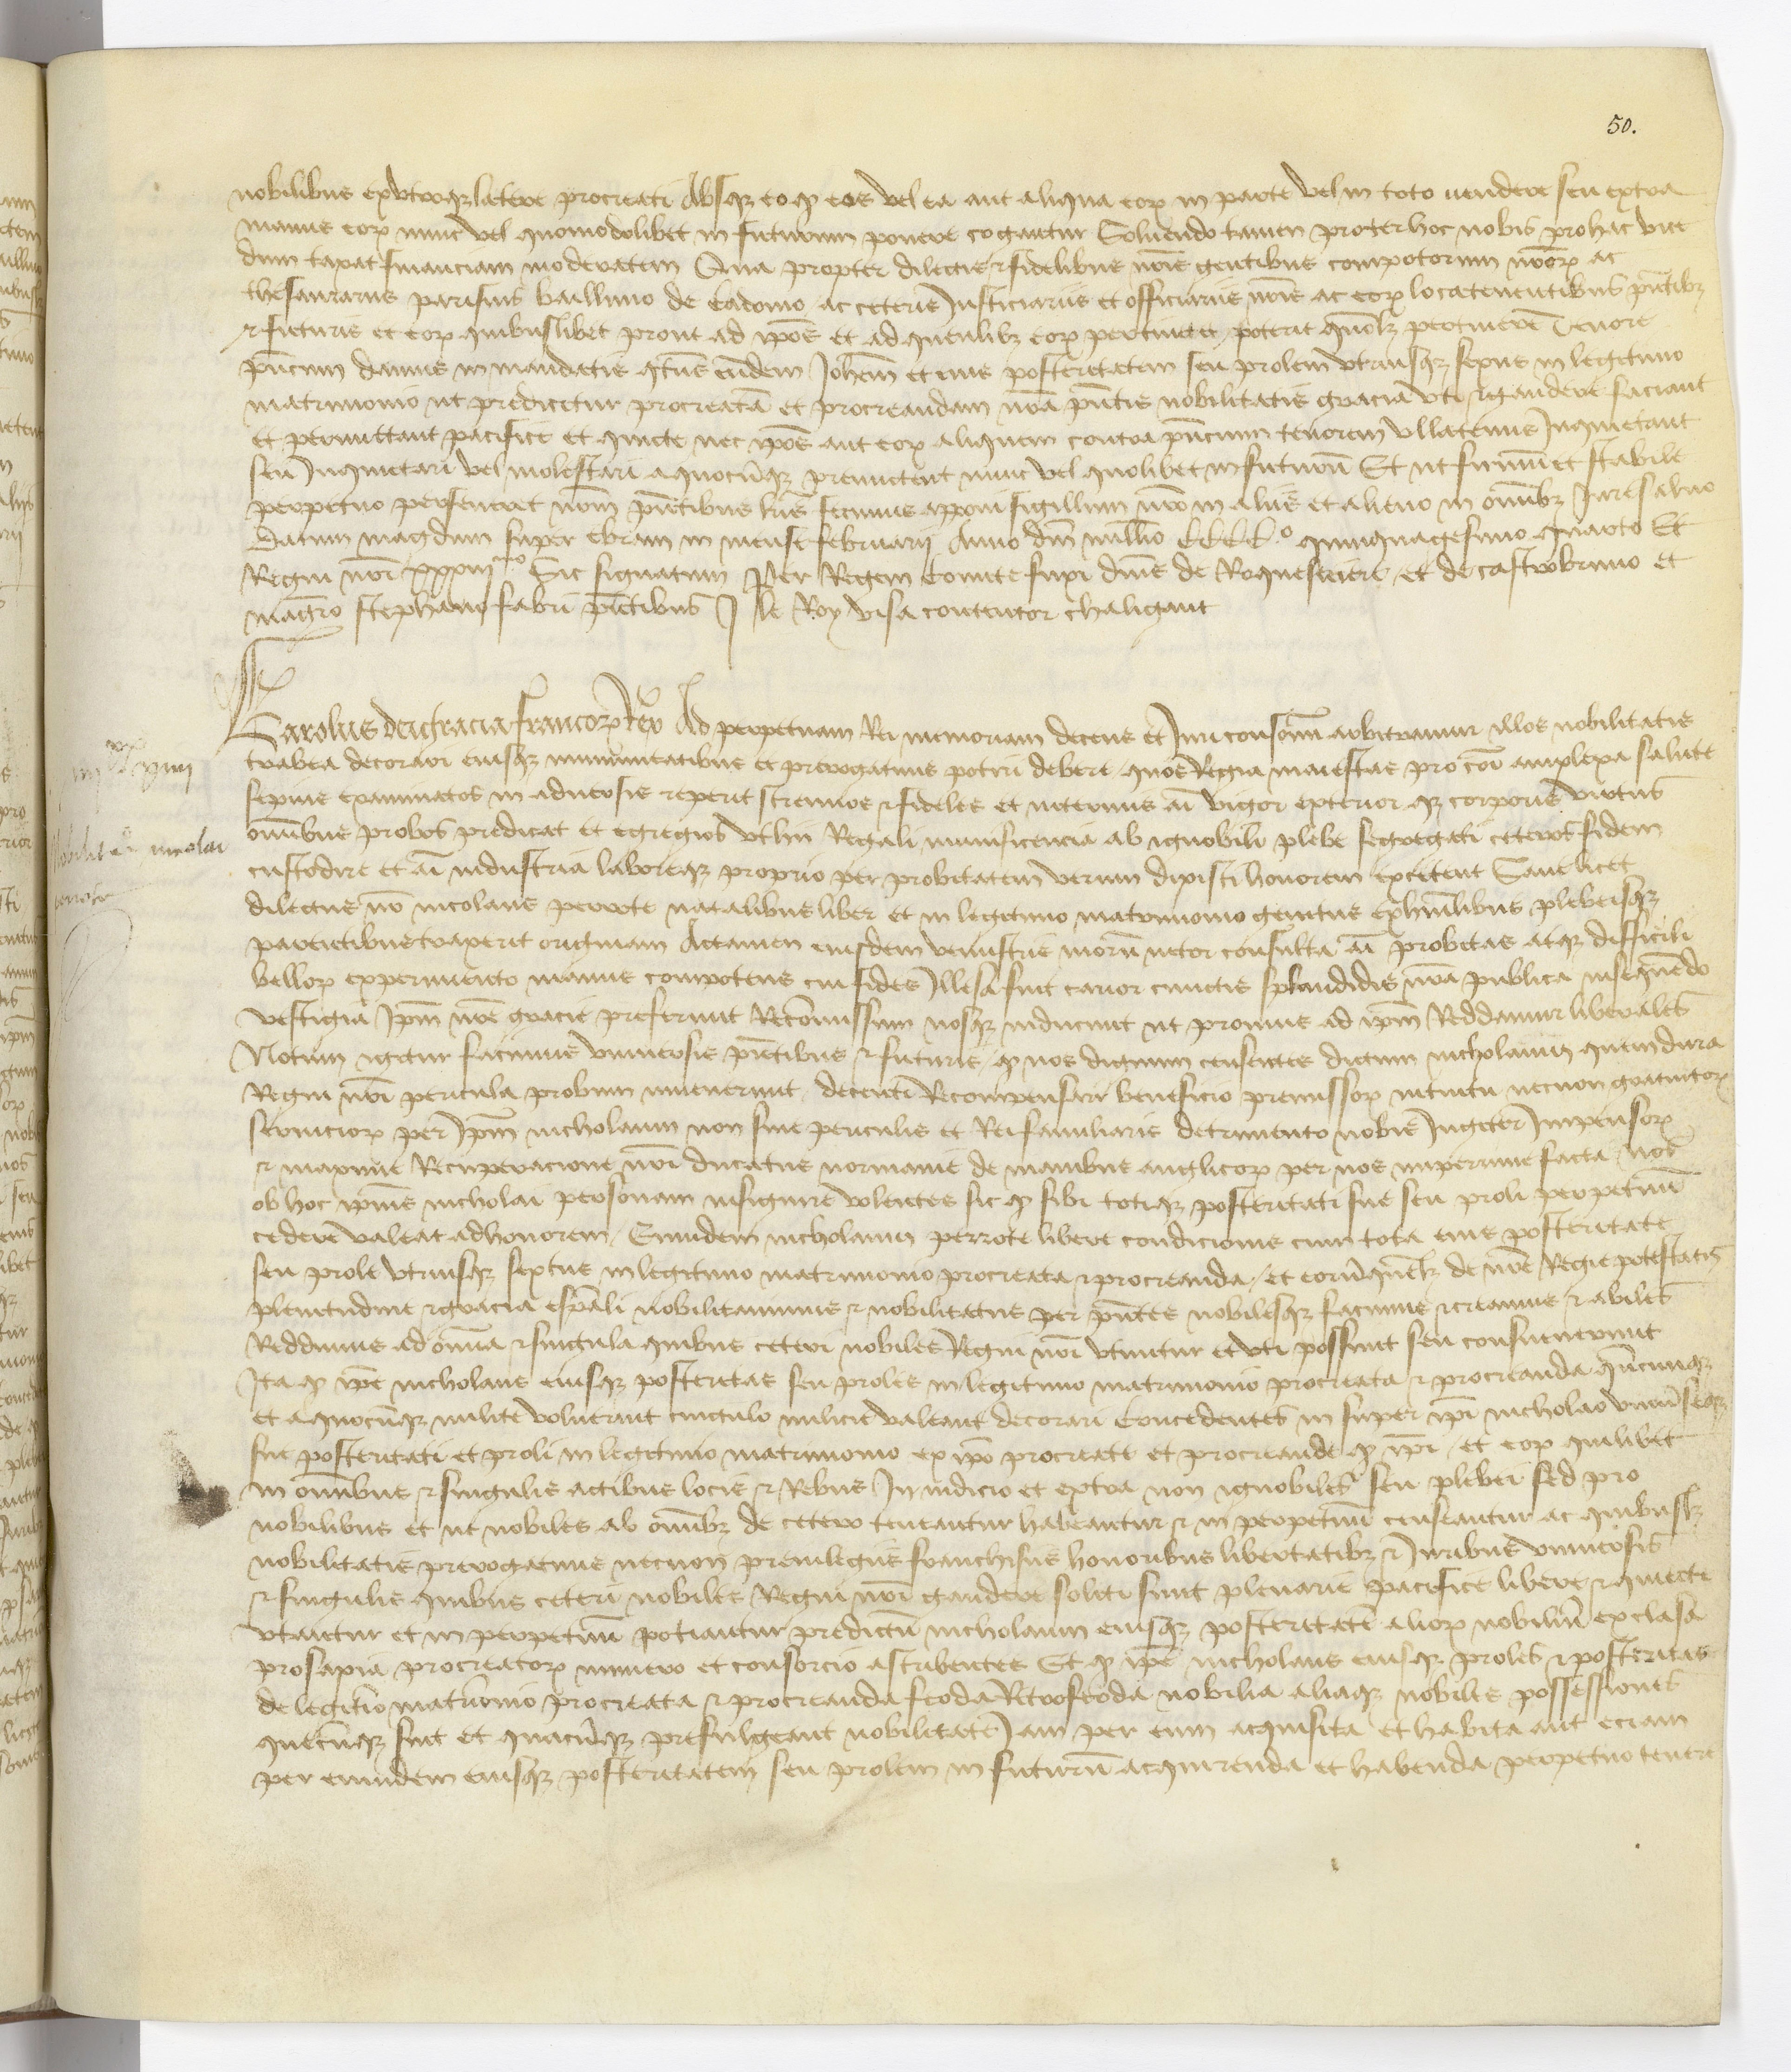 50.
nobilibus exutroqz latere procreati Absqz eo qz eos vel ea aut aliqua eorꝝ in parte vel in toto vendere seu extra
manus eorꝝ nunc vel quomodolibet in futurum ponere cogantur Solvendo tamen propter hoc nobis pro hac vice
dum taxat financiam moderatam Qua propter dilectis et fidelibus nr̄is gentibus compotorum nr̄orꝝ ac
thesaurarus parisius baillivo de Cadomo ac ceteris Justiciariis et officiariis nr̄is ac eorꝝ locatenentibus pn̄tibz
et futuris et eorꝝ quibuslibet prout ad ip̄os et ad quemlibz eorꝝ pertinet et poterit quōlz pertinere Tenore
pn̄cium damus in mandatis qtus eūdem Joh̄em et eius posteritatem seu prolem utriusqz sexus in legitimo
matrimonio ut predicitur procreatā et procreandam nr̄a pn̄tis nobilitatis gracia uti et gaudere faciant
et permittant pacifice et quiete nec ip̄os aut eorꝝ aliquem contra pn̄cium tenorem ullatenus Inquietant
seu Inquietari vel molestari a quocūqz permictent nunc vel quolibet in futurū Et ut firmū et stabile
perpetuo perseveret nr̄m pn̄tibus lr̄is fecimus apponi sigillum nr̄o in aliis et alieno in omībz Jure salvo
Datum magdum super Ebram in mense februarii Anno dn̄i mill̄io CCCC.o quinquagesimo quarto Et
Regni nr̄i xxxiii.cio Sic signatum Per Regem Comite fuxi dn̄is de Roqueferiere et de castrobruno et
mag̃ro stephano fabri pn̄tibus J le Roy visa contentor chaligant
Carolus dei gracia francorꝝ Rex Ad perpetuam Rei memoriam decens et Juri consonū arbitramur illos nobilitatis
trabea decorari eiusqz immunitatibus et prerogativis potiri debere quos Regia maiestas pro cōi amplexa salute
sepius examinatos in adversis reperit strenuos et fideles et internus aī vigor exterior qz corporis virtus
omībus probos predicat et egregios ut hii Regali munificencia ab ignobili plebe segregati ceteros fidem
custodire et aī industria laboreqz proprio per probitatem verum dixisti honorem excitent Sane licet
dilectus nr̄ nicolaus perrote natalibus liber et in legitimo matrimonio genitus ex hūilibus plebeisqz
parentibus traxerit originam Attamen eiusdem venustris morū nitor consulta aī probitas atqz difficili
bellorꝝ experimento manus compotens cui fides Illesa fuit carior cunctis splandidis nr̄a publica insequēdo
vestigia Ip̄m nr̄e gracie preferunt Recōmissum nosqz inducunt ut pronius ad ip̄m Reddamur liberales
Notum igitur facimus universis pn̄tibus et futuris qz nos dignum censentes dictum nicholaum quem dura
Regni nr̄i pericula probum invenerunt decenti Recompensari beneficio premissorꝝ intuitu necnon gratuitorꝝ
serviciorꝝ per Ip̄m nicholaum non sine periculis et Rei familiaris detrimento nobis Jugiter Impensorꝝ
et maxime Recuperacione nr̄i ducatus normanie de manibus anglicorꝝ per nos nuperrime facta nos
ob hoc ip̄ius nicholai personam insignire volentes sic qz sibi totiqz posteritati sue seu proli perpetuū
cedere valeat ad honorem Eumdem nicholaum perrote libere condicionis cum tota eius posteritate
seu prole utriusqz sextus in legitimo matrimonio procreata et procreanda et eorū quēlz de nr̄e Regie potestatis
plenitudine et gracia esp̄ali nobilitavimus et nobilitatus per pn̄tes nobilesqz facimus et creamus et abiles
Reddimus ad omīa et singula quibus ceteri nobiles Regni nr̄i utuntur et uti possunt seu consueverunt
Ita qz ip̄e nicholaus eiusqz posteritas seu proles in legitimo matrimonio procreata et procreanda quācumqz
et a quocūqz milite voluerint cingulo milicie valeant decorari Concedentes in super ip̄i nicholao universeqz
sue posteritati et proli in legitimo matrimonio ex ip̄o procreate et procreande qz ip̄i et eorꝝ quilibet
in omībus et singulis actibus locis et Rebus In iudicio et extra non ignobiles seu plebei sed pro
nobilibus et ut nobiles ab omībz de cetero teneantur habeantur et in perpetuū censeantur ac quibuslz
nobilitatis prerogativis necnon previlegiis franchisiis honoribus libertatibz et Juribus universis
et singulis quibus ceteri nobiles Regni nr̄i gaudere soliti sunt plenarie pacifice libere et quiete
utantur et in perpetuū potiantur predictū nicholaum eiusqz posteritatē aliorꝝ nobiliū exclasa
prosapia procreatorꝝ numero et consorcio astribentes Et qz ip̄e nicholaus eiusqz proles et posteritas
de legitimo matrimonio procreata et procreanda feoda Retrofeoda nobilia aliaqz nobiles possessiones
quecūqz sint et quacūqz prefulgeant nobilitate Jam per eum acquisita et habita aut eciam
per eumdem eiusqz posteritatem seu prolem in futurū acquirenda et habenda perpetuo tenere
Nobilitacō nicolai
perrote